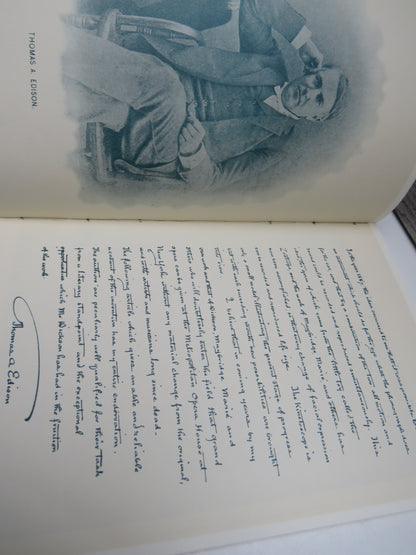 THOMAS A. EDISON.
In the year 1887, the idea occurred to me that it was
the phonograph does
for the ear, and that by a combination of the two all motion and
sound could be recorded and reproduced simultaneously. This
idea, the germ of which came from the little toy called the
Zoetrope, and the work of Muybridge, Marié and others has
now been accomplished, so that every change of facial expression
can be recorded and reproduced life size. The Kinetoscope is
only a small model illustrating the present stage of progress
but with each succeeding month new possibilities are brought
into view. I believe that in coming years by my
own work and that of Dickson, Muybridge Marié and
others who will doubtlessly enter the field that grand
opera can be given at the Metropolitan Opera House at
New York without any material change from the original,
and with artists and musicians long since dead.
The following article which gives an able and reliable
account of the invention has my entire endorsation.
The authors are peculiarly well qualified for their task
from a literary standpoint and the exceptional
opportunities which Mr Dickson has had in the fruition
of the work
Thomas A Edison